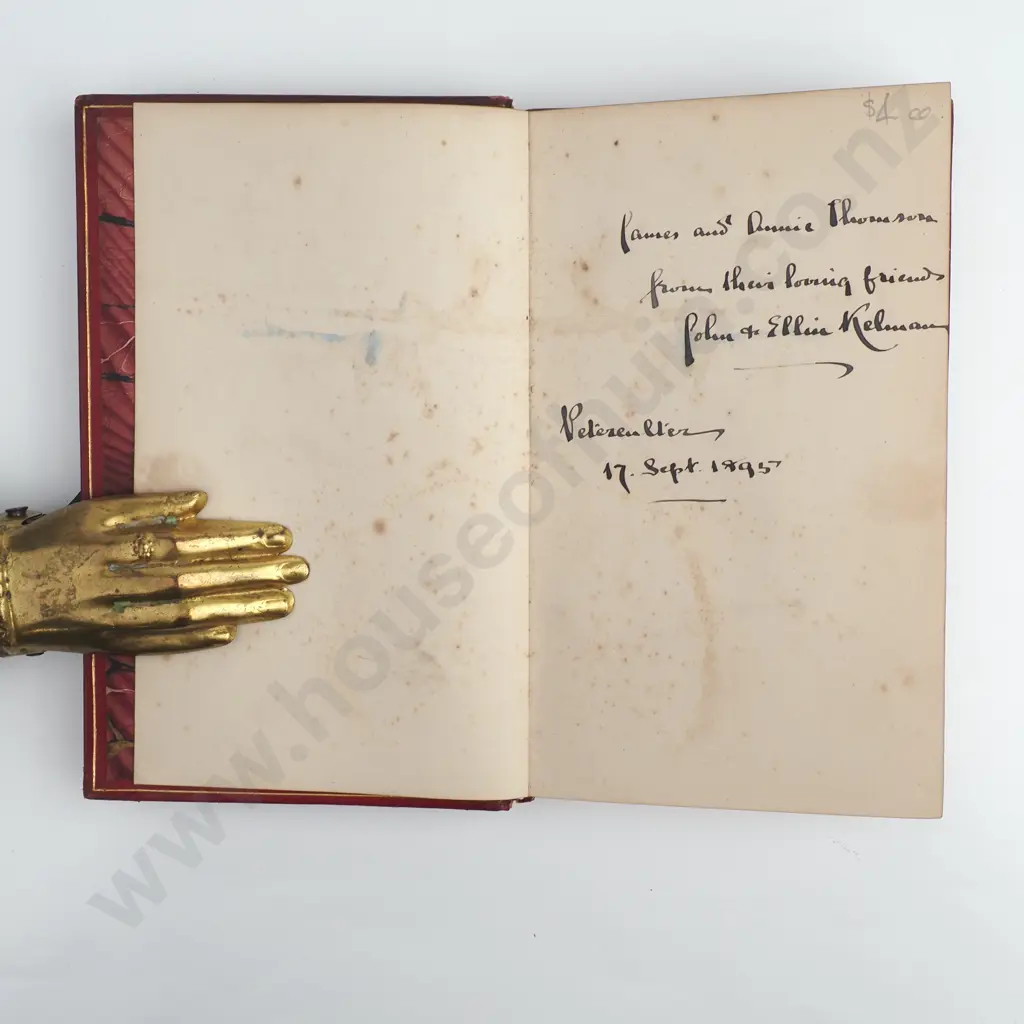 $4 00
James and Annie Thomson
from their loving friends
John & Ellin Kelman
Peterculter
17. Sept. 1895
www.houseofhuia.co.nz